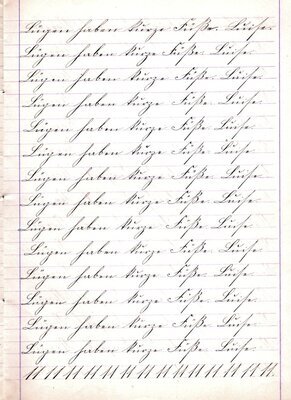 Lügen haben kurze Füße. Luise.
Lügen haben kurze Füße. Luise.
Lügen haben kurze Füße. Luise.
Lügen haben kurze Füße. Luise.
Lügen haben kurze Füße. Luise.
Lügen haben kurze Füße. Luise.
Lügen haben kurze Füße. Luise.
Lügen haben kurze Füße. Luise.
Lügen haben kurze Füße. Luise.
Lügen haben kurze Füße. Luise.
Lügen haben kurze Füße. Luise.
Lügen haben kurze Füße. Luise.
Lügen haben kurze Füße. Luise.
Lügen haben kurze Füße. Luise.